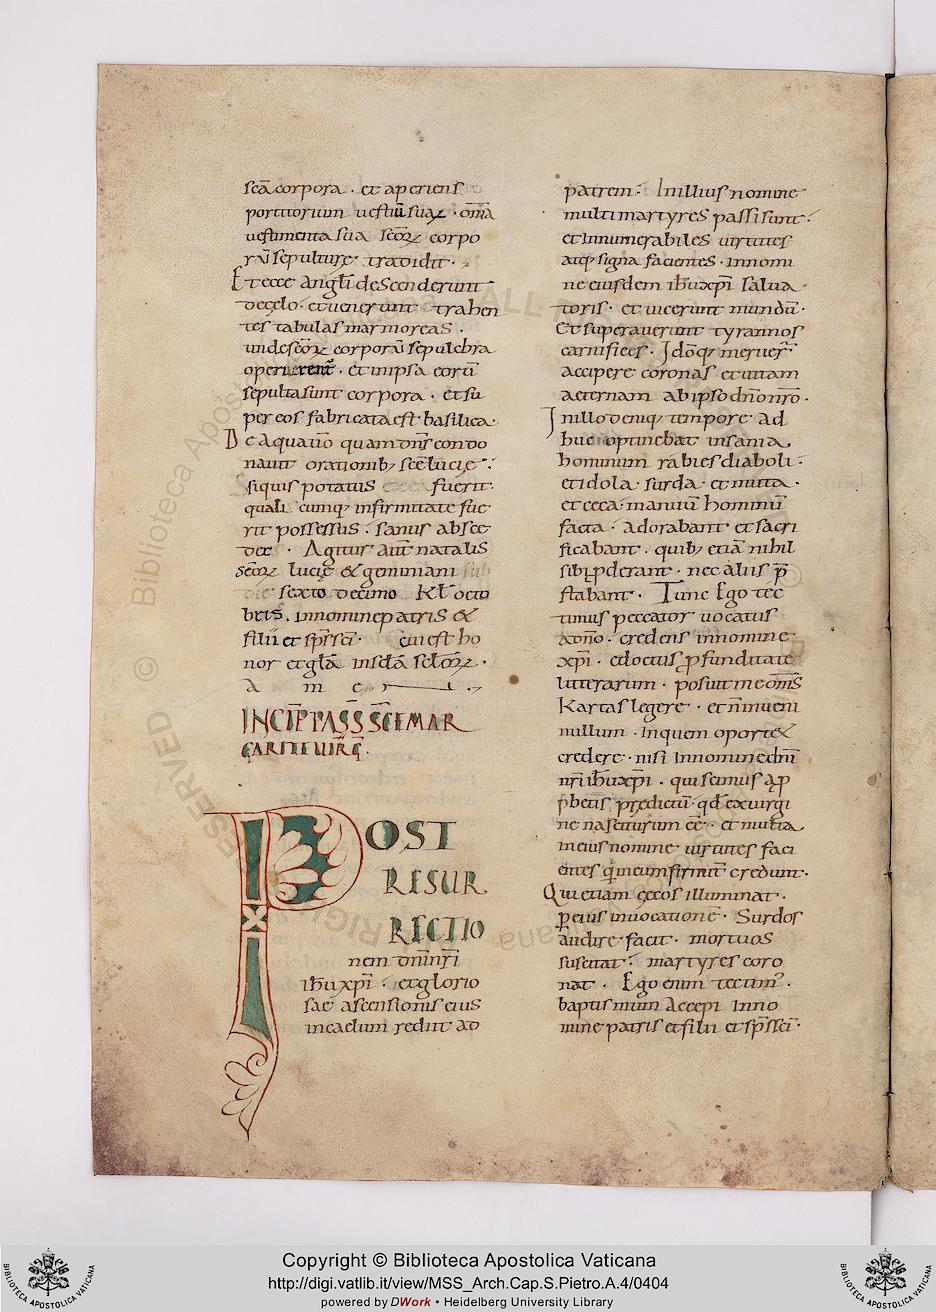 scā corpora · et aperiens
portitorium uestiū suaꝝ · om̄ia
uestimenta sua scōꝝ corpo
rū sepulturȩ tradidit ·
Et ecce angl̄i descenderunt
de cȩlo · et uenerunt trahen
tes tabulas marmoreas ·
unde scōꝝ corporū sepulchra
operirent̄ · et in ipsa eorū
sepulta sunt corpora · et su
per eos fabricata est basilica·
De aqua uō quam dn̄s condo
nauit orationib; scē luciȩ ·
siquis potatus fuerit·
quali cumq; infirmitate fue
rit possessus · sanus absce
det · Agitur aut̄ natalis
scōꝝ lucie & geminiani
sexto decimo Kl̄ octo
bris̄ · in nomine patris &
filii et sps̄ sci̅ · cui est ho
nor et gl̄a in scl̄a scl̄oꝝ ·
a m e n
INCIP̄ PASS̄ SC̄E MAR
GARITE UIRG̅ ·
POST
RESUR
RECTIO
nem dn̄i nr̄i
ihū xp̄i · et glorio
sae ascensionis eius
in caelum rediit ad
patrem · In illius nomine
multi martyres passi sunt ·
et innumerabiles uirtutes
atq; signa facientes · in nomi
ne eiusdem ihū xp̄i salua
toris · et uicerunt mundū ·
Et superauerunt tyrannos
carnifices · Idōq; meruer̄
accipere coronas et uitam
aeternam ab ipso dn̄o nr̄o ·
In illo deniq; tempore ad
huc optinebat insania
hominum rabies diaboli ·
et idola surda et muta ·
et ceca manuū hominū
facta · adorabant et sacri
ficabant · quib; etiā nihil
sibi ꝓderant · nec aliis p̄
stabant · Tunc Ego tec
timus peccator uocatus
a dn̄o · credens in nomine
xp̄i · edoctus ꝓfunditate
litterarum · posui t me om̄s
Kartas legere · et n̄ inueni
nullum · In quem oport&
credere · nisi In nomine dn̄i
nr̄i ihū xp̄i · qui scimus a ꝓ
phetis predictū · qd̄ ex uirgi
ne nasciturum eē · et multa
in eius nomine uirtutes faci
entes q̄ in eum firmit̄ credunt·
Qui etiam cȩcos illuminat ·
ꝑ eius inuocatione · Surdos
audire facit · mortuos
suscitat · martyres coro
nat · Ego enim tectim9 ·
baptismum accepi In no
mine patris et filii et sps̄ sci̅ ·
Copyright © Biblioteca Apostolica Vaticana
http://digi.vatlib.it/view/MSS_Arch.Cap.S.Pietro.A.4/0404
powered by DWork • Heidelberg University Library
BIBLIOTECA APOSTOLICA VATICANA
BIBLIOTECA APOSTOLICA VATICANA